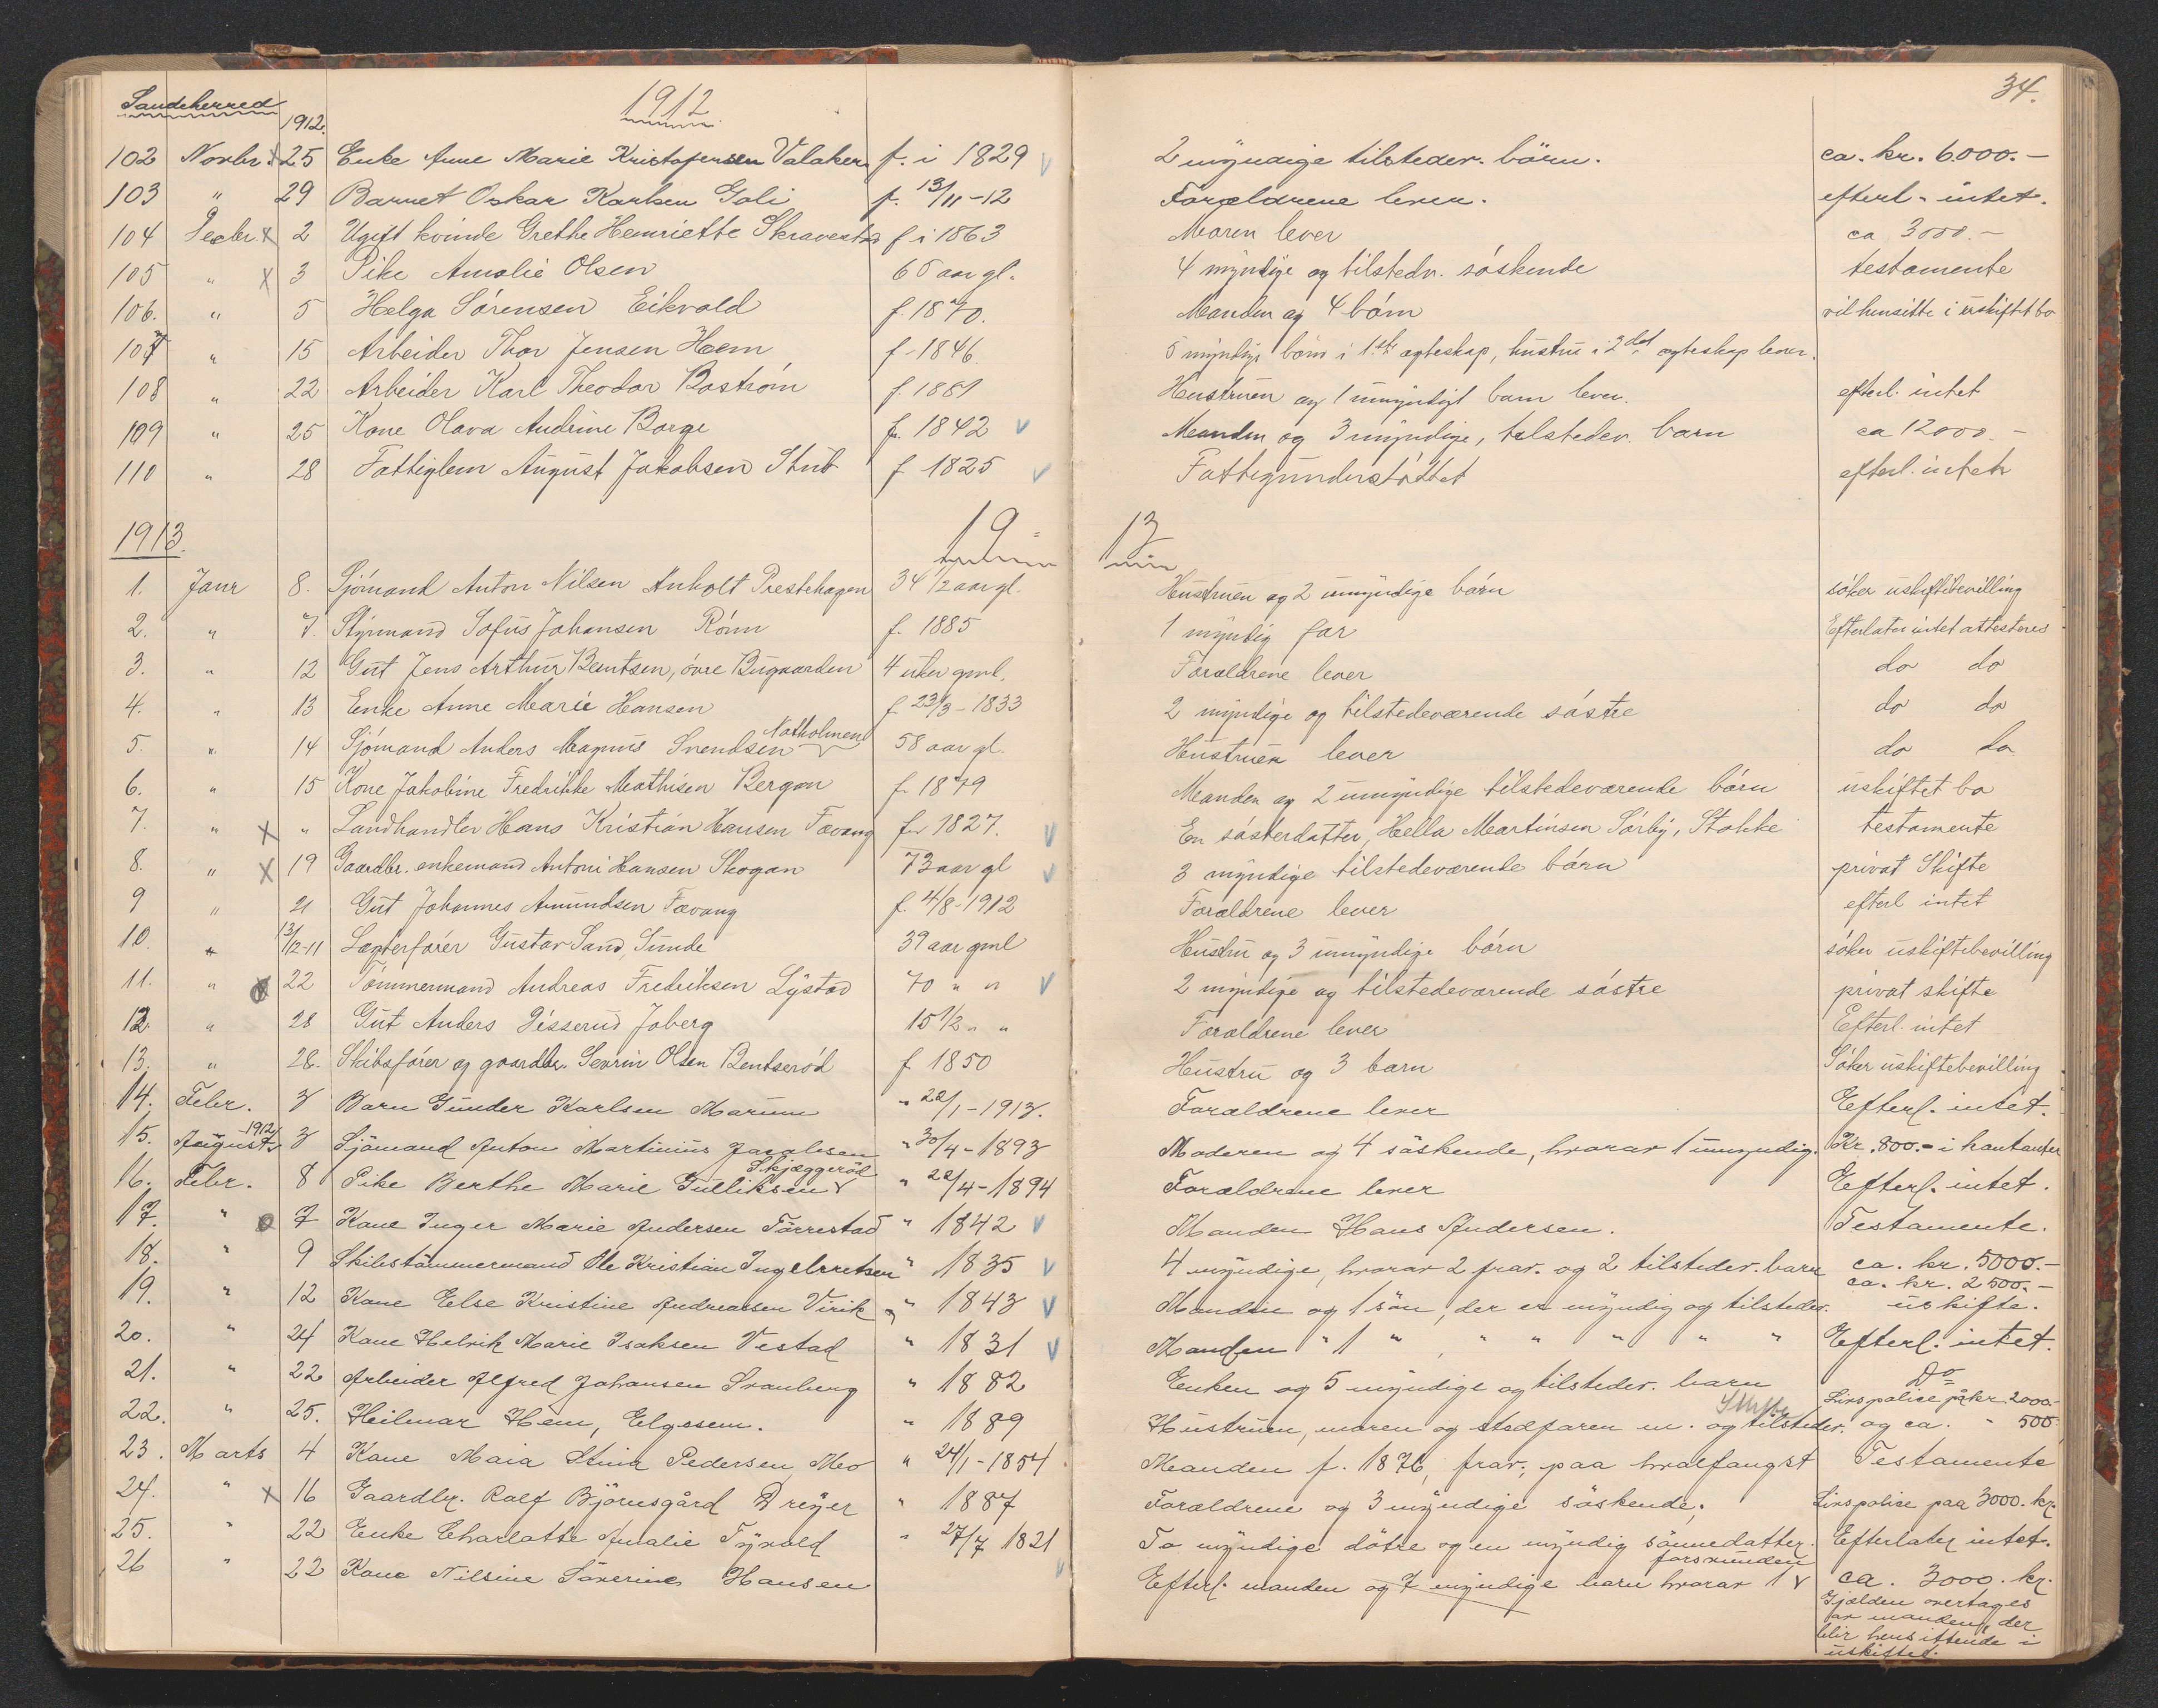 Sandeherred
1912
34.
1912.
102 Novbr. x 25 Enke Anne Marie Kristofersen Valaker f. i 1829 2 myndige tilstedev. börn. ca. kr. 6000.-
103 " 29 Barnet Oskar Karlsen Goli f. 13/11-12 Forældrene lever. efterl. intet.
104 Decbr x 2 Ugift kvinde Grethe Henriette Skravestad f i 1863 Moren lever ca 3000.-
105 " x 3 Pike Amalie Olsen 66 aar gl. 4 myndige og tilstedv. söskende testamente
106. " 5 Helga Sörensen Eikvold f. 1870. Manden og 4 börn vil hensitte i uskiftet bo
107 " 15 Arbeider Thor Jensen Hem f. 1846. 5 myndige börn i 1ste egteskap, hustru i 2det egteskap lever.
108 " 22 Arbeider Karl Theodor Boström f. 1881 Hustruen og 1 umyndigt barn lever. efterl. intet
109 " 25 Kone Olava Andrine Borge f. 1842 Manden og 3 myndige, tilstedev. barn ca 12000.-
110 " 28 Fattiglem August Jakobsen Stub f 1825 Fattigunderstöttet efterl. intet
1913. 19 13
1. Janr 8. Sjömand Anton Nilsen Anholt Prestehagen 34 1/2 aar gl. Hustruen og 2 umyndige börn söker uskiftebevilling
2. " 7. Styrmand Sofus Johansen Rönn f. 1885 1 myndig far Efterlater intet attesteres
3. " 12 Gut Jens Arthur Berntsen, övre Bugaarden 4 uker gml. Forældrene lever do do
4. " 13 Enke Anne Marie Hansen f. 23/3-1833 2 myndige og tilstedeværende söstre do do
5. " 14 Sjömand Anders Magnus Svendsen Natholmen 58 aar gl. Hustruen lever do do
6. " 15 Kone Jakobine Fredrikke Mathisen Bergan f. 1879 Manden og 2 umyndige tilstedeværende börn uskiftet bo
7. " x " Landhandler Hans Kristian Hansen Fevang f. 1827. En sösterdatter, Hella Martinsen Sörby, Stokke testamente
8. " x 19 Gaardbr. enkemand Antoni Hansen Skogan 73 aar gl 3 myndige tilstedeværende börn privat Skifte
9 " 21 Gut Johannes Amundsen Fevang f. 4/8-1912 Forældrene lever efterl intet
10. " 13/12-11 Lægterförer Gustav Sand, Sunde 39 aar gml Hustru og 3 umyndige börn söker uskiftebevilling
11. " 22 Tömmermand Andreas Fredriksen Lystad 70 " " 2 myndige og tilstedeværende söstre privat skifte
12. " 28 Gut Anders Disserud Joberg 15 1/2 " " Forældrene lever Efterl. intet
13. " 28. Skibsförer og gaardbr. Sevrin Olsen Bentseröd f 1850 Hustru og 3 barn Söker uskiftebevilling
14. Febr. 3 Barn Gunder Karlsen Marum " 28/1-1913. Forældrene lever Efterl. intet.
15. August 1912 3 Sjömand Anton Martinius Jacobsen " 30/4-1893 Moderen og 4 söskende, hvorav 1 umyndig. Kr. 800.- i kontanter
16. Febr. 8 Pike Berthe Marie Gulliksen Skjeggeröd " 22/4-1894 Forældrene lever Efterl. intet.
17. " 7 Kone Inger Marie Andersen Törrestad " 1842 Manden Hans Andersen. Testamente.
18. " 9 Skibstömmermand Ole Kristian Ingebretsen " 1835 4 myndige, hvorav 2 frav. og 2 tilstedev. barn ca. kr. 5000.-
19. " 12 Kone Else Kristine Andreassen Virik " 1843 Manden og 1 sön, der er myndig og tilstedev. ca. kr. 2500.- uskifte.
20. " 24 Kone Helvik Marie Isaksen Vestad " 1831 Manden " 1 " , " " " " " Efterl. intet.
21. " 22 Arbeider Alfred Johansen Svanberg " 1882 Enken og 5 myndige og tilstedev. barn Do
22. " 25. Heilmar Hem, Elgesem. " 1889 Hustruen, moren og stedfaren m. og tilstedev. Livspolise på kr. 2000.- og ca. " 500
23. Marts 4 Kone Maia Stina Pedersen Mo " 24/1-1854 Manden f. 1876, frav., paa hvalfangst Testamente
24. " x 16 Gaardbr. Rolf Björnsgård Dreyer " 1887 Forældrene og 3 myndige söskende, Livspolise paa 3000. kr.
25. " 22 Enke Charlotte Amalie Tyvold " 27/7 1821 To myndige dötre og en myndig sönnedatter. Efterlater intet.
26 " 22 Kone Nilsine Severine Hansen Efterl. manden og 7 myndige barn hvorav 1 forsvunden ca. 3000. kr.
Gjælden overtages
av manden, der
blir hensittende i
uskiftet.